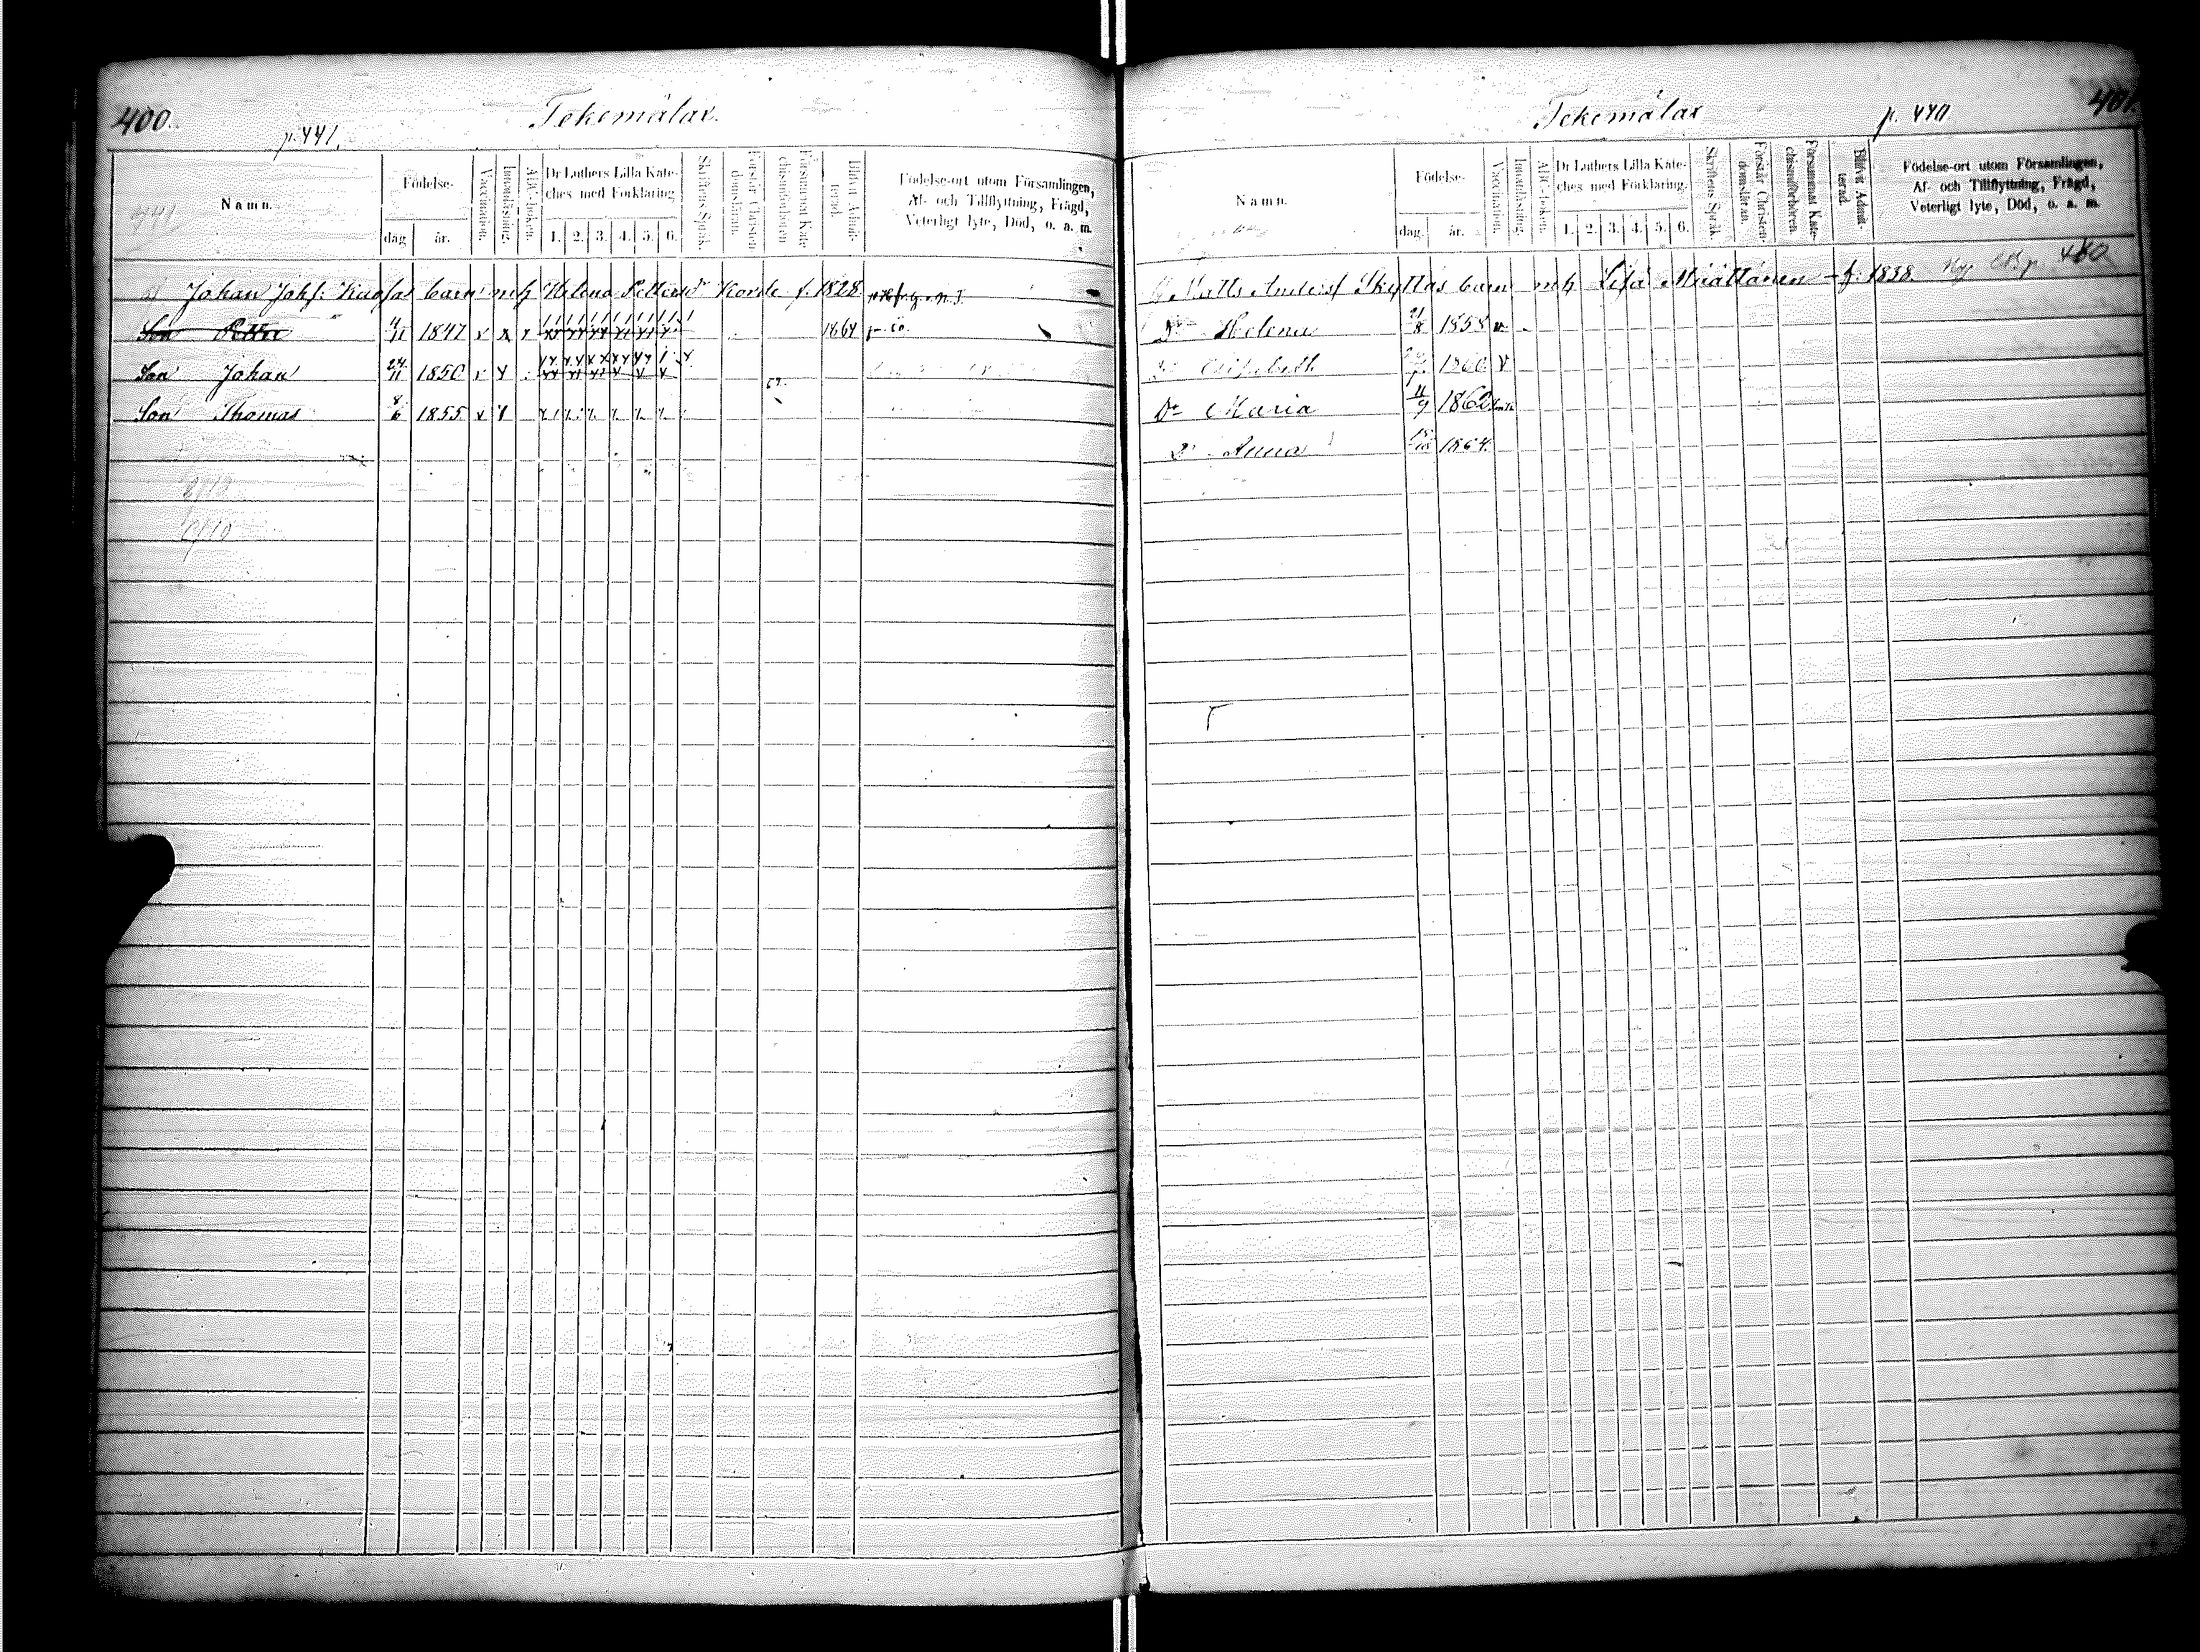 400.
p. 441.
Tekemälax.
Namn.
Födelse-
dag
år.
Vaccination.
Innanläsning.
ABC-boken.
Dr Luthers Lilla Kate-
ches med Förklaring.
1. 2. 3. 4. 5. 6.
Skriftens Språk.
Förstår Christen-
domsläran.
Försummat Kate-
chismiförhören.
Blifvit Admit-
terad.
Födelse-ort utom Församlingen,
Af- och Tillflyttning, Frägd,
Veterligt lyte, Död, o. a. m.
Johan Johs: barn m h Helena Pettersdr Korde f. 1828
Son Petter 1847 1864
Son Johan 24/11 1850
Son Thomas 8/6 1855
401.
Tekemälax
p. 440
Namn.
Födelse-
dag.
år.
Vaccination.
Innanläsning.
ABC-boken.
Dr Luthers Lilla Kate-
ches med Förklaring.
1. 2. 3. 4. 5. 6.
Skriftens Språk.
Förstår Christen-
domsläran.
Försummat Kate-
chismiförhören.
Blifvit Admit-
terad.
Födelse-ort utom Församlingen,
Af- och Tillflyttning, Frägd,
Veterligt lyte, Död, o. a. m.
Matts Anderss Skyttas barn m h Lisa Määttänen f. 1838.
Dr Helena 21/8 1858 v
Dr Elisabeth 1860 v
Dr Maria 11/9 1862
Dr Anna 1864.